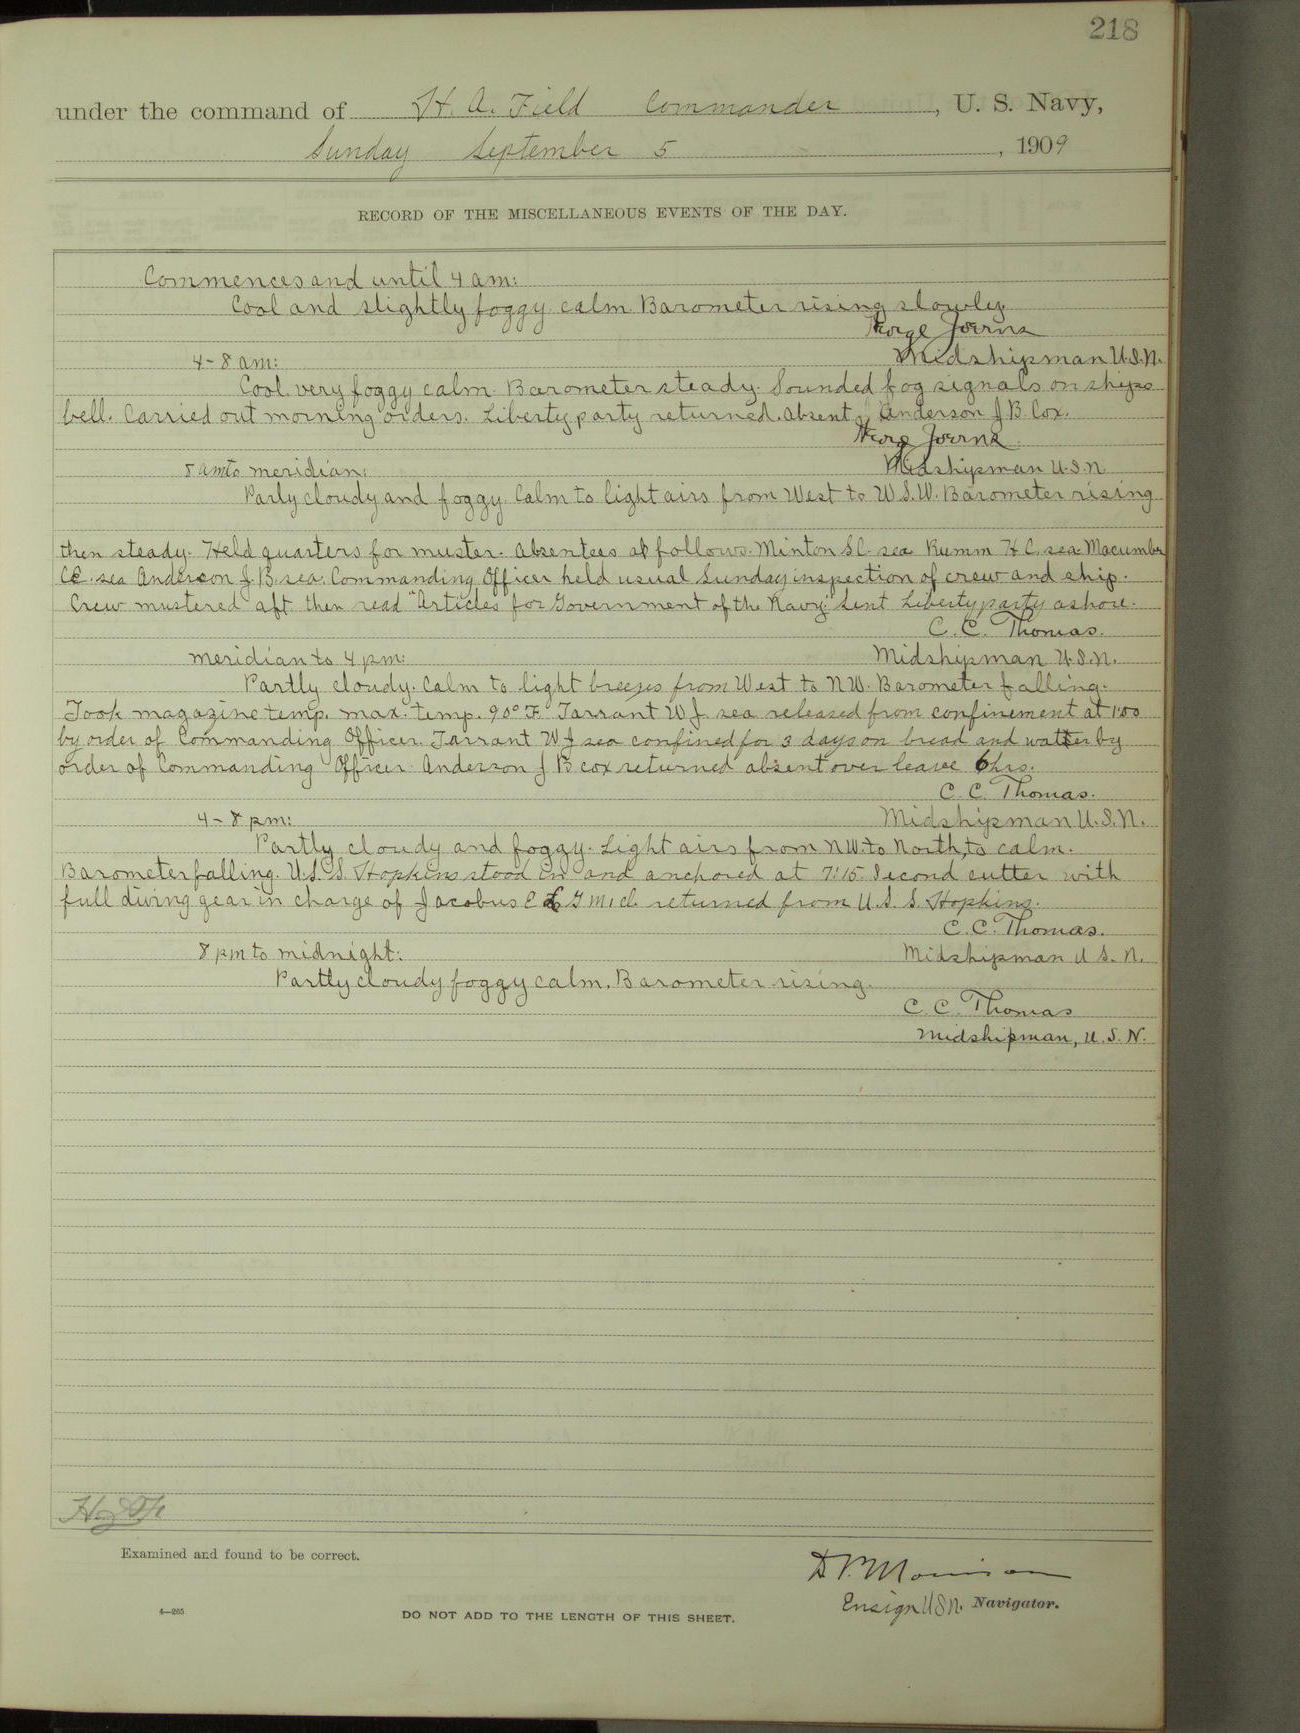 218
under the command of H. A. Field Commander, U. S. Navy,
Sunday September 5, 1909
RECORD OF THE MISCELLANEOUS EVENTS OF THE DAY.
Commences and until 4 am:
Cool and slightly foggy calm Barometer rising slowly.
George Joerns
Midshipman U.S.N.
4-8 am:
Cool very foggy calm. Barometer steady. Sounded fog signals on ships
bell. Carried out morning orders. Liberty party returned. Absent, Anderson J B Cox.
George Joerns
Midshipman U.S.N
8 am to meridian:
Partly cloudy and foggy. Calm to light airs from West to W.S.W. Barometer rising
then steady. Held quarters for muster. Absentees as follows. Minton S C. sea Rumm H C. sea Macumber
CE. sea Anderson J. B. sea. Commanding Officer held usual Sunday inspection of crew and ship.
Crew mustered aft then read "Articles for Government of the Navy." Sent Liberty party ashore.
C. C. Thomas.
meridian to 4 pm:
Midshipman U.S.N.
Partly cloudy. Calm to light breezes from West to NW. Barometer falling.
Took magazine temp. max. temp. 90° F. Tarrant W J. sea released from confinement at 1:00
by order of Commanding Officer. Tarrant W J sea confined for 3 days on bread and water by
order of Commanding Officer. Anderson J B cox returned absent over leave 6 hrs.
C. C. Thomas.
4-8 pm:
Midshipman U.S.N.
Partly cloudy and foggy. Light airs from NW. to North, to calm.
Barometer falling. U.S.S. Hopkins stood in and anchored at 7:15. Second cutter with
full diving gear in charge of Jacobus E G M 1 cl. returned from U.S.S. Hopkins.
C. C. Thomas.
8 pm to midnight:
Midshipman U S. N.
Partly cloudy foggy calm. Barometer rising.
C. C. Thomas
Midshipman, U. S. N.
Examined and found to be correct.
Morrison
Ensign USN. Navigator.
4—265
DO NOT ADD TO THE LENGTH OF THIS SHEET.